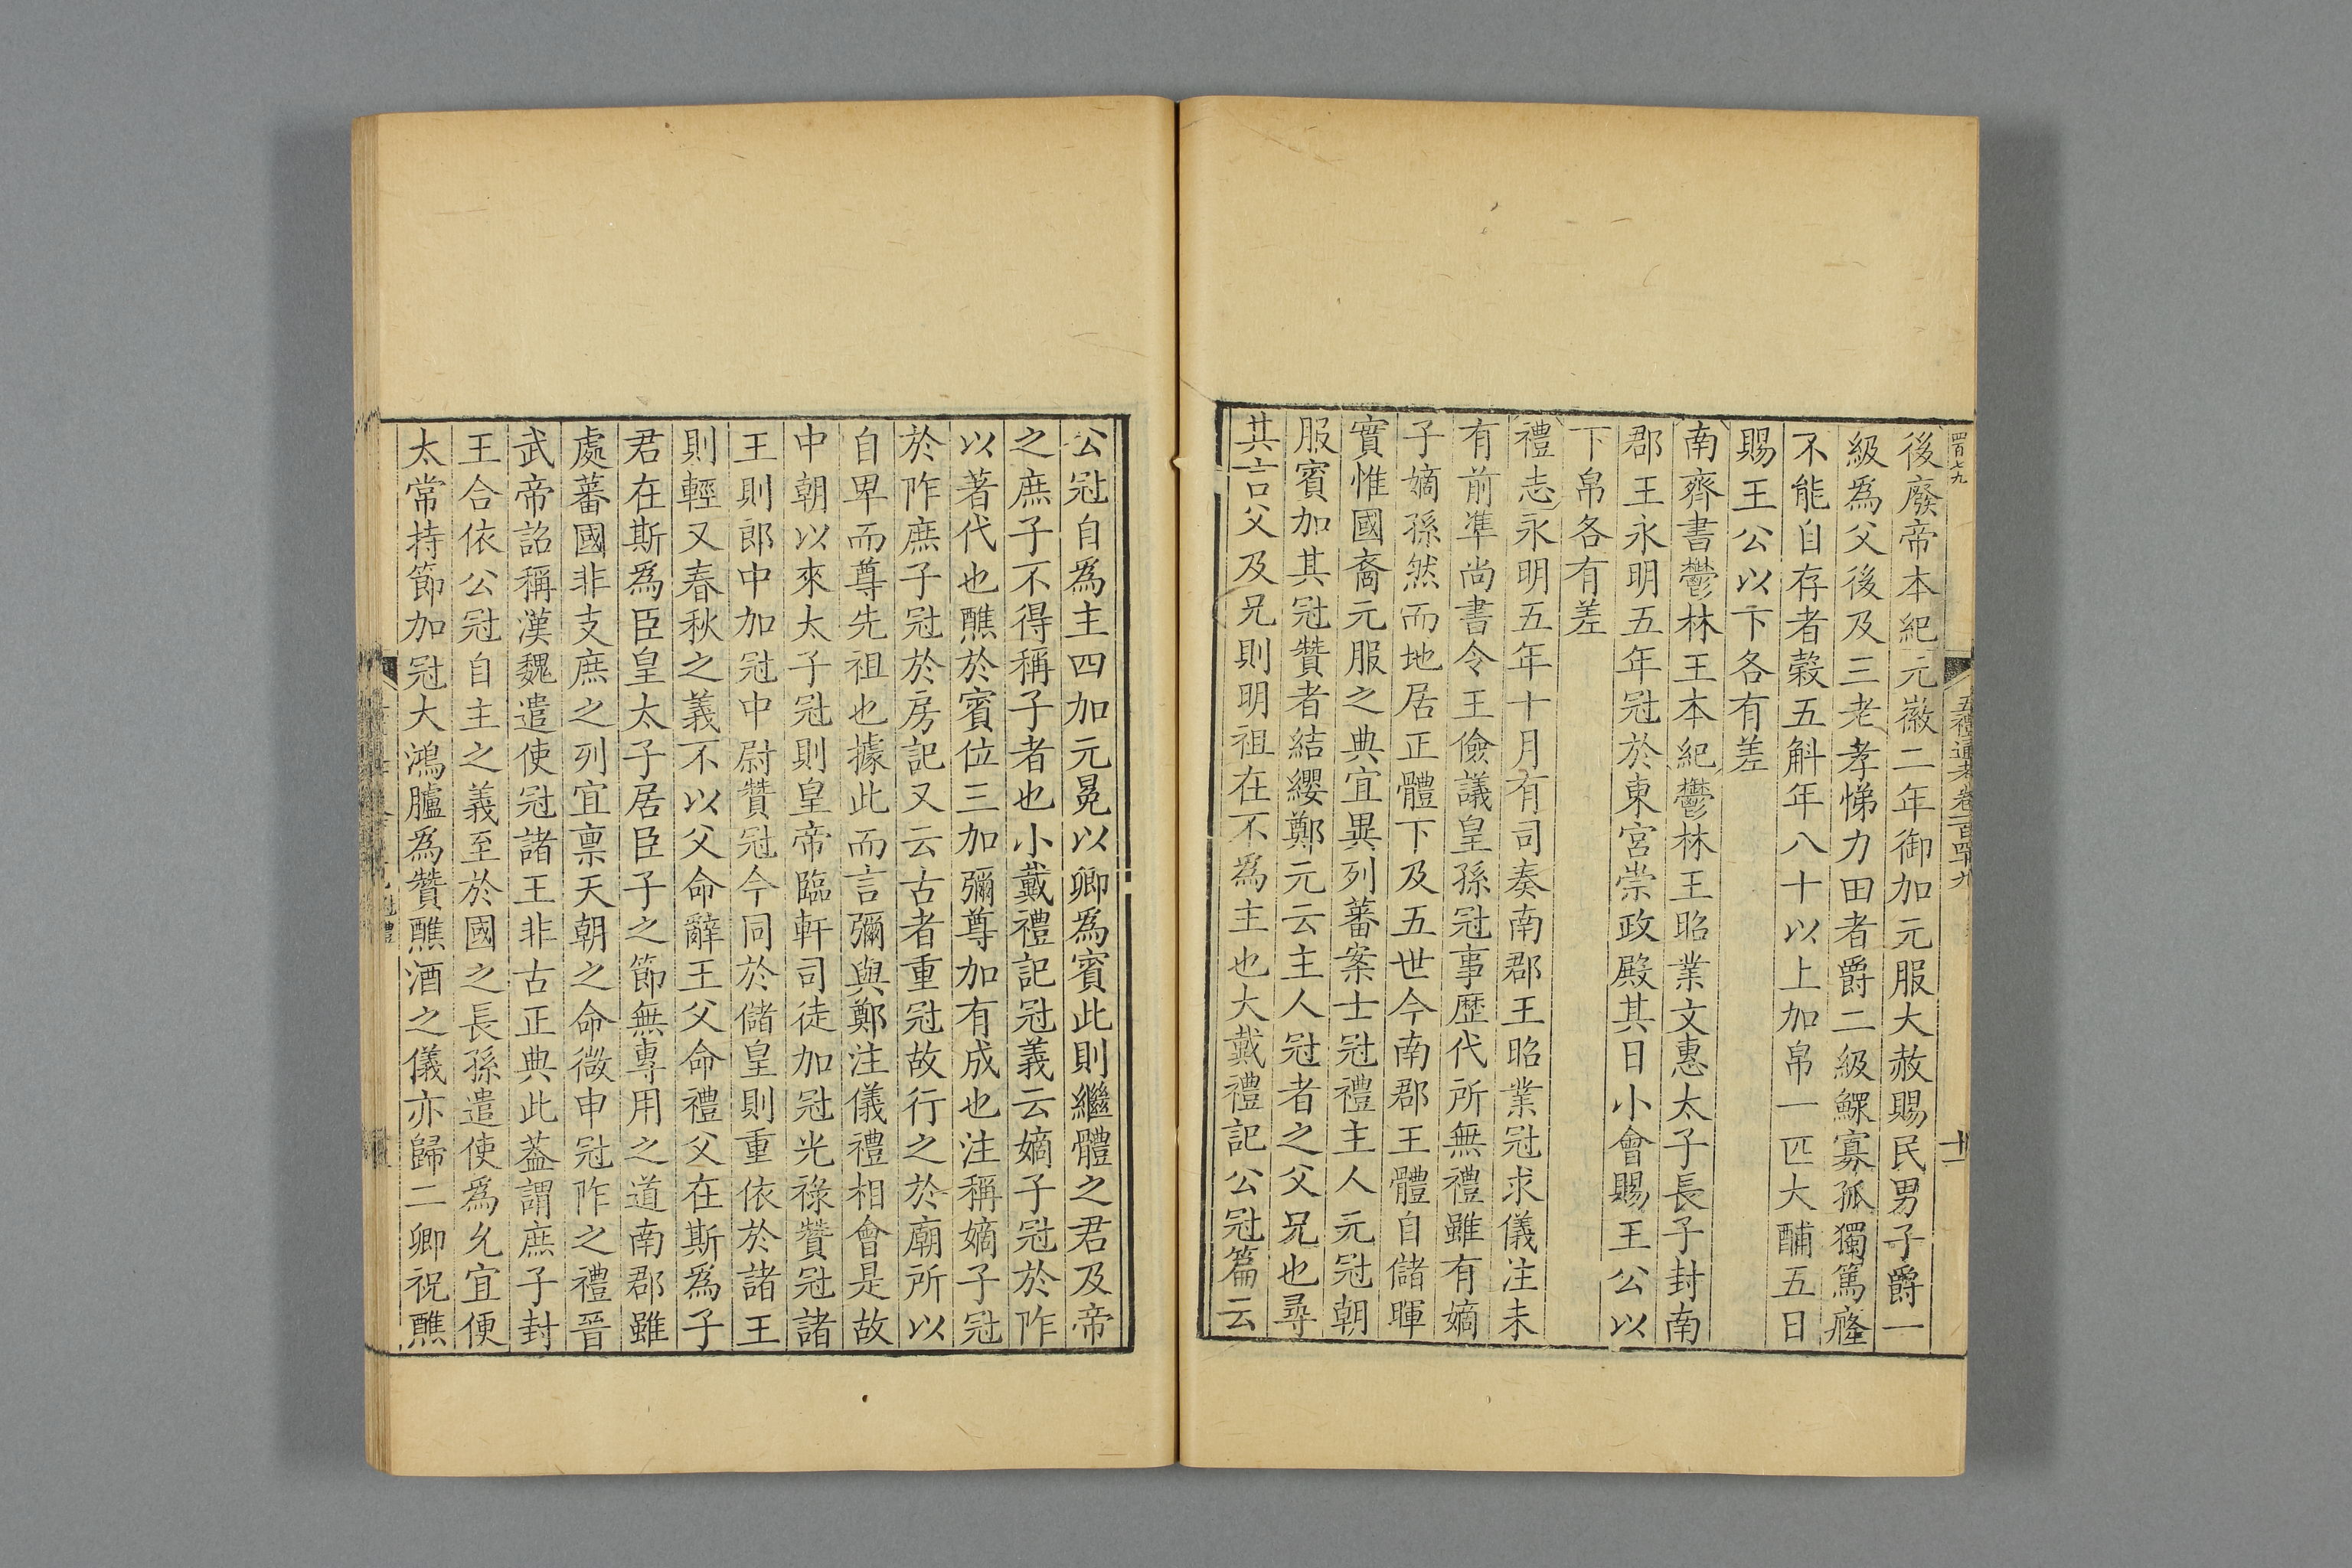 四百七九
五禮通考卷一百四十九
十一
後廢帝本紀元徽二年御加元服大赦賜民男子爵一
級爲父後及三老孝悌力田者爵二級鰥寡孤獨篤癃
不能自存者穀五斛年八十以上加帛一匹大酺五日
賜王公以下各有差
南齊書鬱林王本紀鬱林王昭業文惠太子長子封南
郡王永明五年冠於東宮崇政殿其日小會賜王公以
下帛各有差
禮志永明五年十月有司奏南郡王昭業冠求儀注未
有前準尚書令王儉議皇孫冠事歷代所無禮雖有嫡
子嫡孫然而地居正體下及五世今南郡王體自儲暉
實惟國裔元服之典宜異列蕃案士冠禮主人元冠朝
服賓加其冠贊者結纓鄭元云主人冠者之父兄也尋
其言父及兄則明祖在不爲主也大戴禮記公冠篇云
公冠自爲主四加元冕以卿爲賓此則繼體之君及帝
之庶子不得稱子者也小戴禮記冠義云嫡子冠於阼
以著代也醮於賓位三加彌尊加有成也注稱嫡子冠
於阼庶子冠於房記又云古者重冠故行之於廟所以
自卑而尊先祖也據此而言彌與鄭注儀禮相會是故
中朝以來太子冠則皇帝臨軒司徒加冠光祿贊冠諸
王則郎中加冠中尉贊冠今同於儲皇則重依於諸王
則輕又春秋之義不以父命辭王父命禮父在斯爲子
君在斯爲臣皇太子居臣子之節無專用之道南郡雖
處蕃國非支庶之列宜稟天朝之命微申冠阼之禮晉
武帝詔稱漢魏遣使冠諸王非古正典此葢謂庶子封
王合依公冠自主之義至於國之長孫遣使爲允宜便
太常持節加冠大鴻臚爲贊醮酒之儀亦歸二卿祝醮